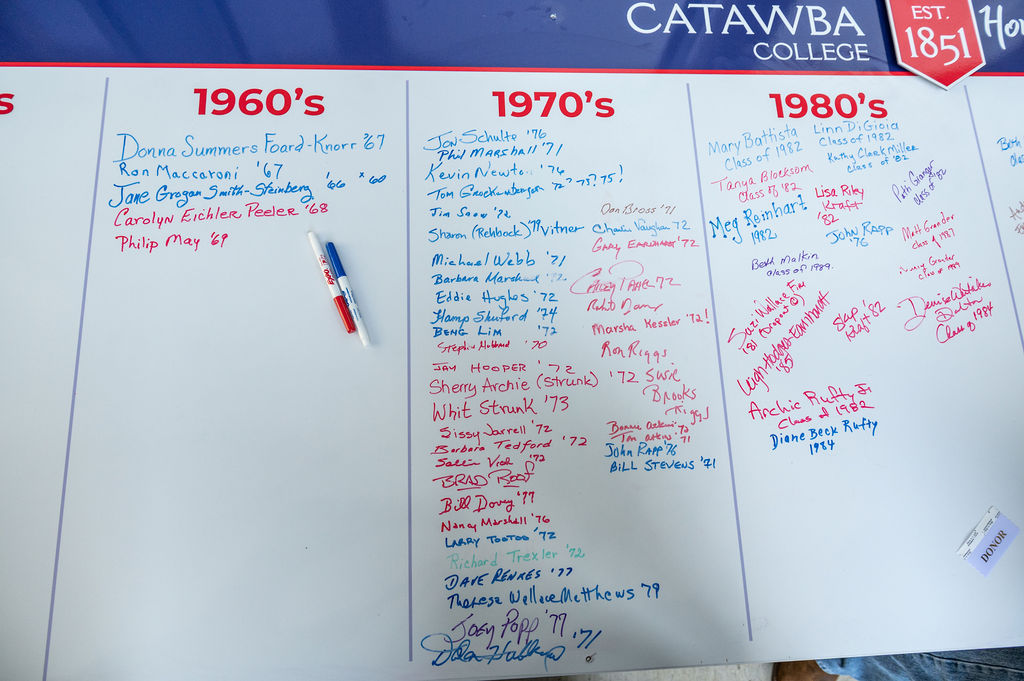 CATAWBA
COLLEGE
EST.
1851
1960's
Donna Summers Foard-Knorr '67
Ron Maccaroni '67
Jane Grogan Smith-Steinberg '66
Carolyn Eichler Peeler '68
Philip May '69
1970's
Jon Schulte '76
Phil Marshall '71
Kevin Newton
Tom
Jim Snow '72
Sharon (Rehbock) '79 Vitner
Michael Webb '71
Barbara Marshall '72
Eddie Hughes '72
Hamp Shuford '74
BENG LIM '72
'70
JAY HOOPER '72
Sherry Archie (Strunk) '72
Whit Strunk '73
Sissy Jarrell '72
Barbara Tedford '72
'72
BRAD
Bill Dovey '77
Nancy Marshall '76
LARRY TOOTOO '72
Richard Trexler '72
DAVE RENKES '77
Theresa Wallace Matthews 79
Joey Popp '77
'71
Dan Bross '71
Charlie Vaughan 72
GARY EARNHARDT '72
72
Marsha Kessler '72!
Ron Riggs
Susie
Brooks
Riggs
Bonnie '72
Jon '71
JOHN RAPP '76
BILL STEVENS '71
1980's
Mary Battista
Class of 1982
Linn DiGioia
Class of 1982
Kathy Clark Miller
class of '82
Tanya Blocksom
Class of '82
Lisa Riley
Kraft
'82
Patti Granger
Class of '82
Meg Reinhart
1982
JOHN RAPP
'76
Matt Grander
class of 1987
Beth Malkin
class of 1989.
class of 1989
Suzi Wallace Fix
'81
Leigh Hodges-Earnhardt
'85
Skip
Kraft '82
Denise
Dalton
Class of 1984
Archie Rufty Jr
Class of 1982
Diane Beck Rufty
1984
DONOR